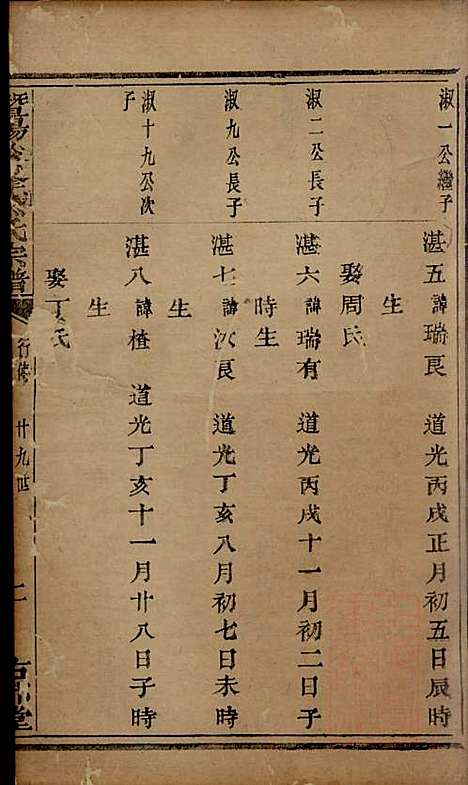 淑一公繼子
湛五諱瑞良 道光丙戌正月初五日辰時
生
娶周氏
淑二公長子
湛六諱瑞有 道光丙戌十一月初二日子
時生
淑九公長子
湛七諱汝良 道光丁亥八月初七日未時
生
淑十九公次
子
湛八諱楂 道光丁亥十一月廿八日子時
生
娶丁氏
暨陽 氏宗譜
行傳 廿九世
堂